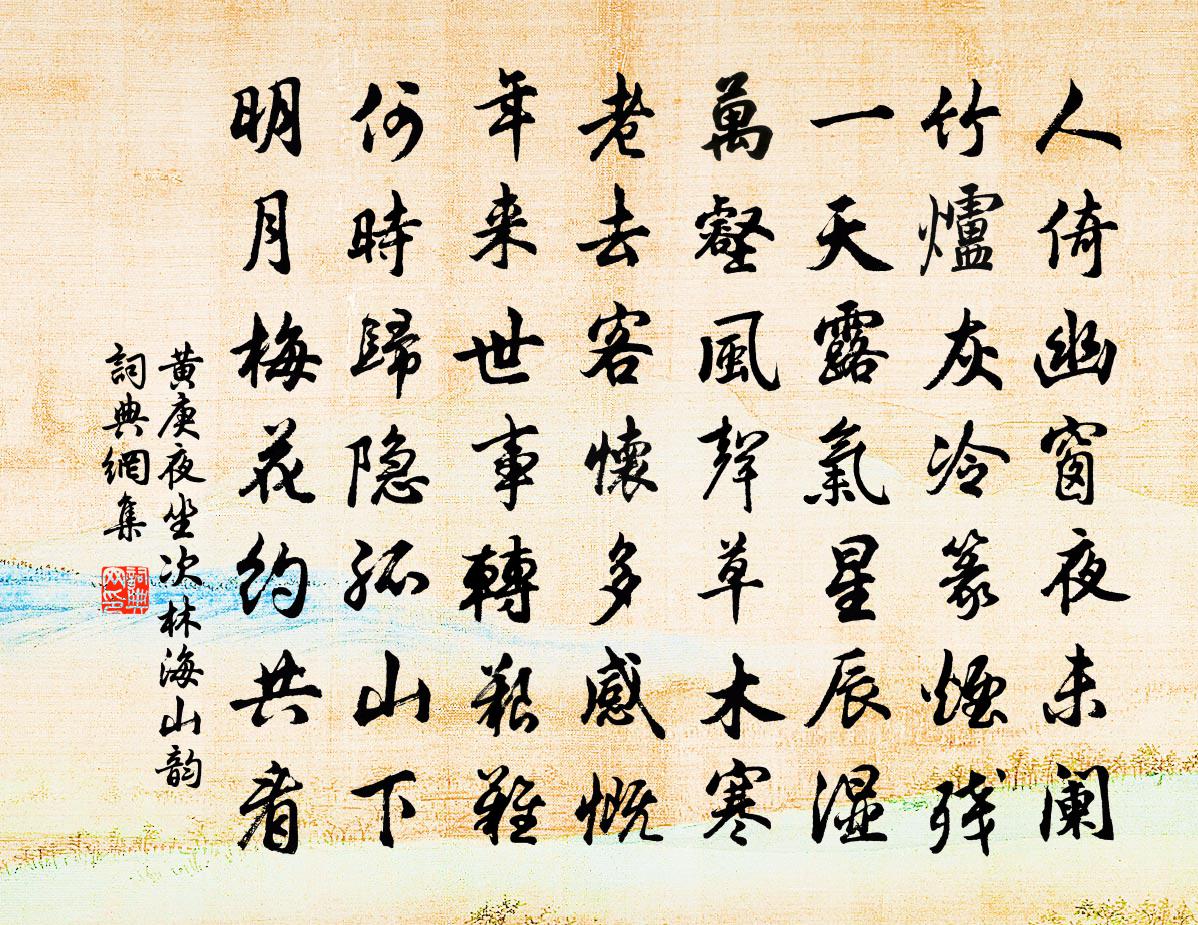 人倚幽窗夜未阑
竹爐灰冷篆煙残
一天露氣星辰濕
萬壑風聲草木寒
老去客懷多感慨
年来世事轉艱難
何時歸隐孤山下
明月梅花約共看
黄庚夜坐次林海山韵
詞典網集